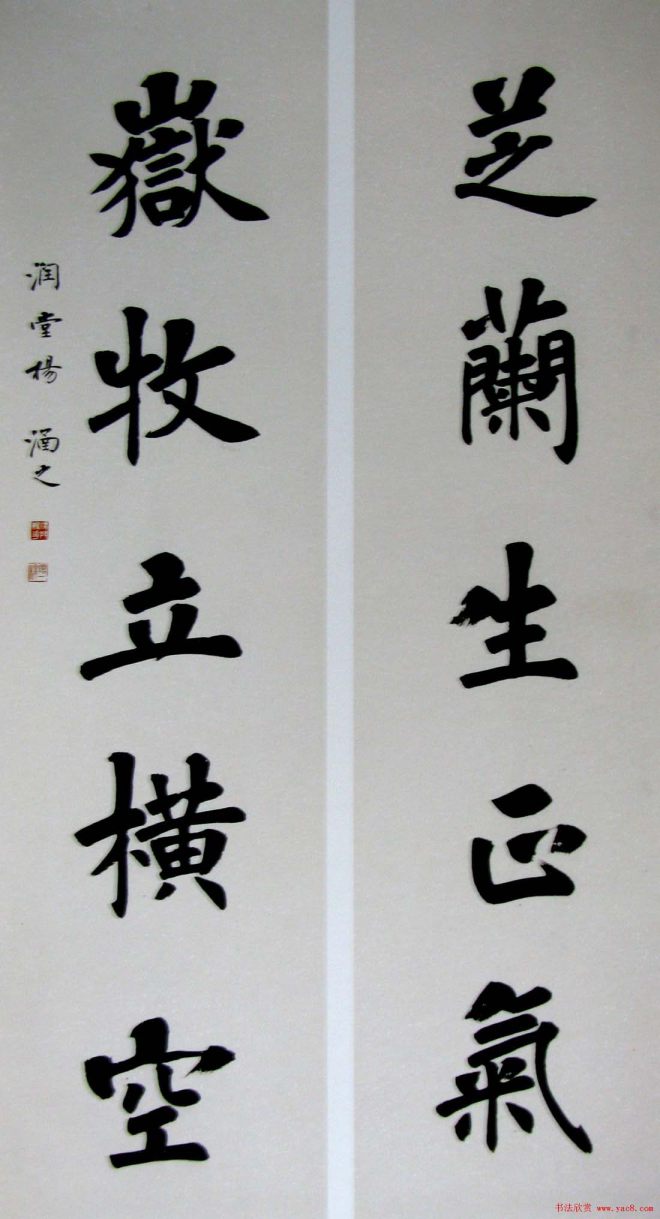 芝蘭生正氣
嶽牧立橫空
潤堂楊涵之
书法欣赏 www.yac8.com